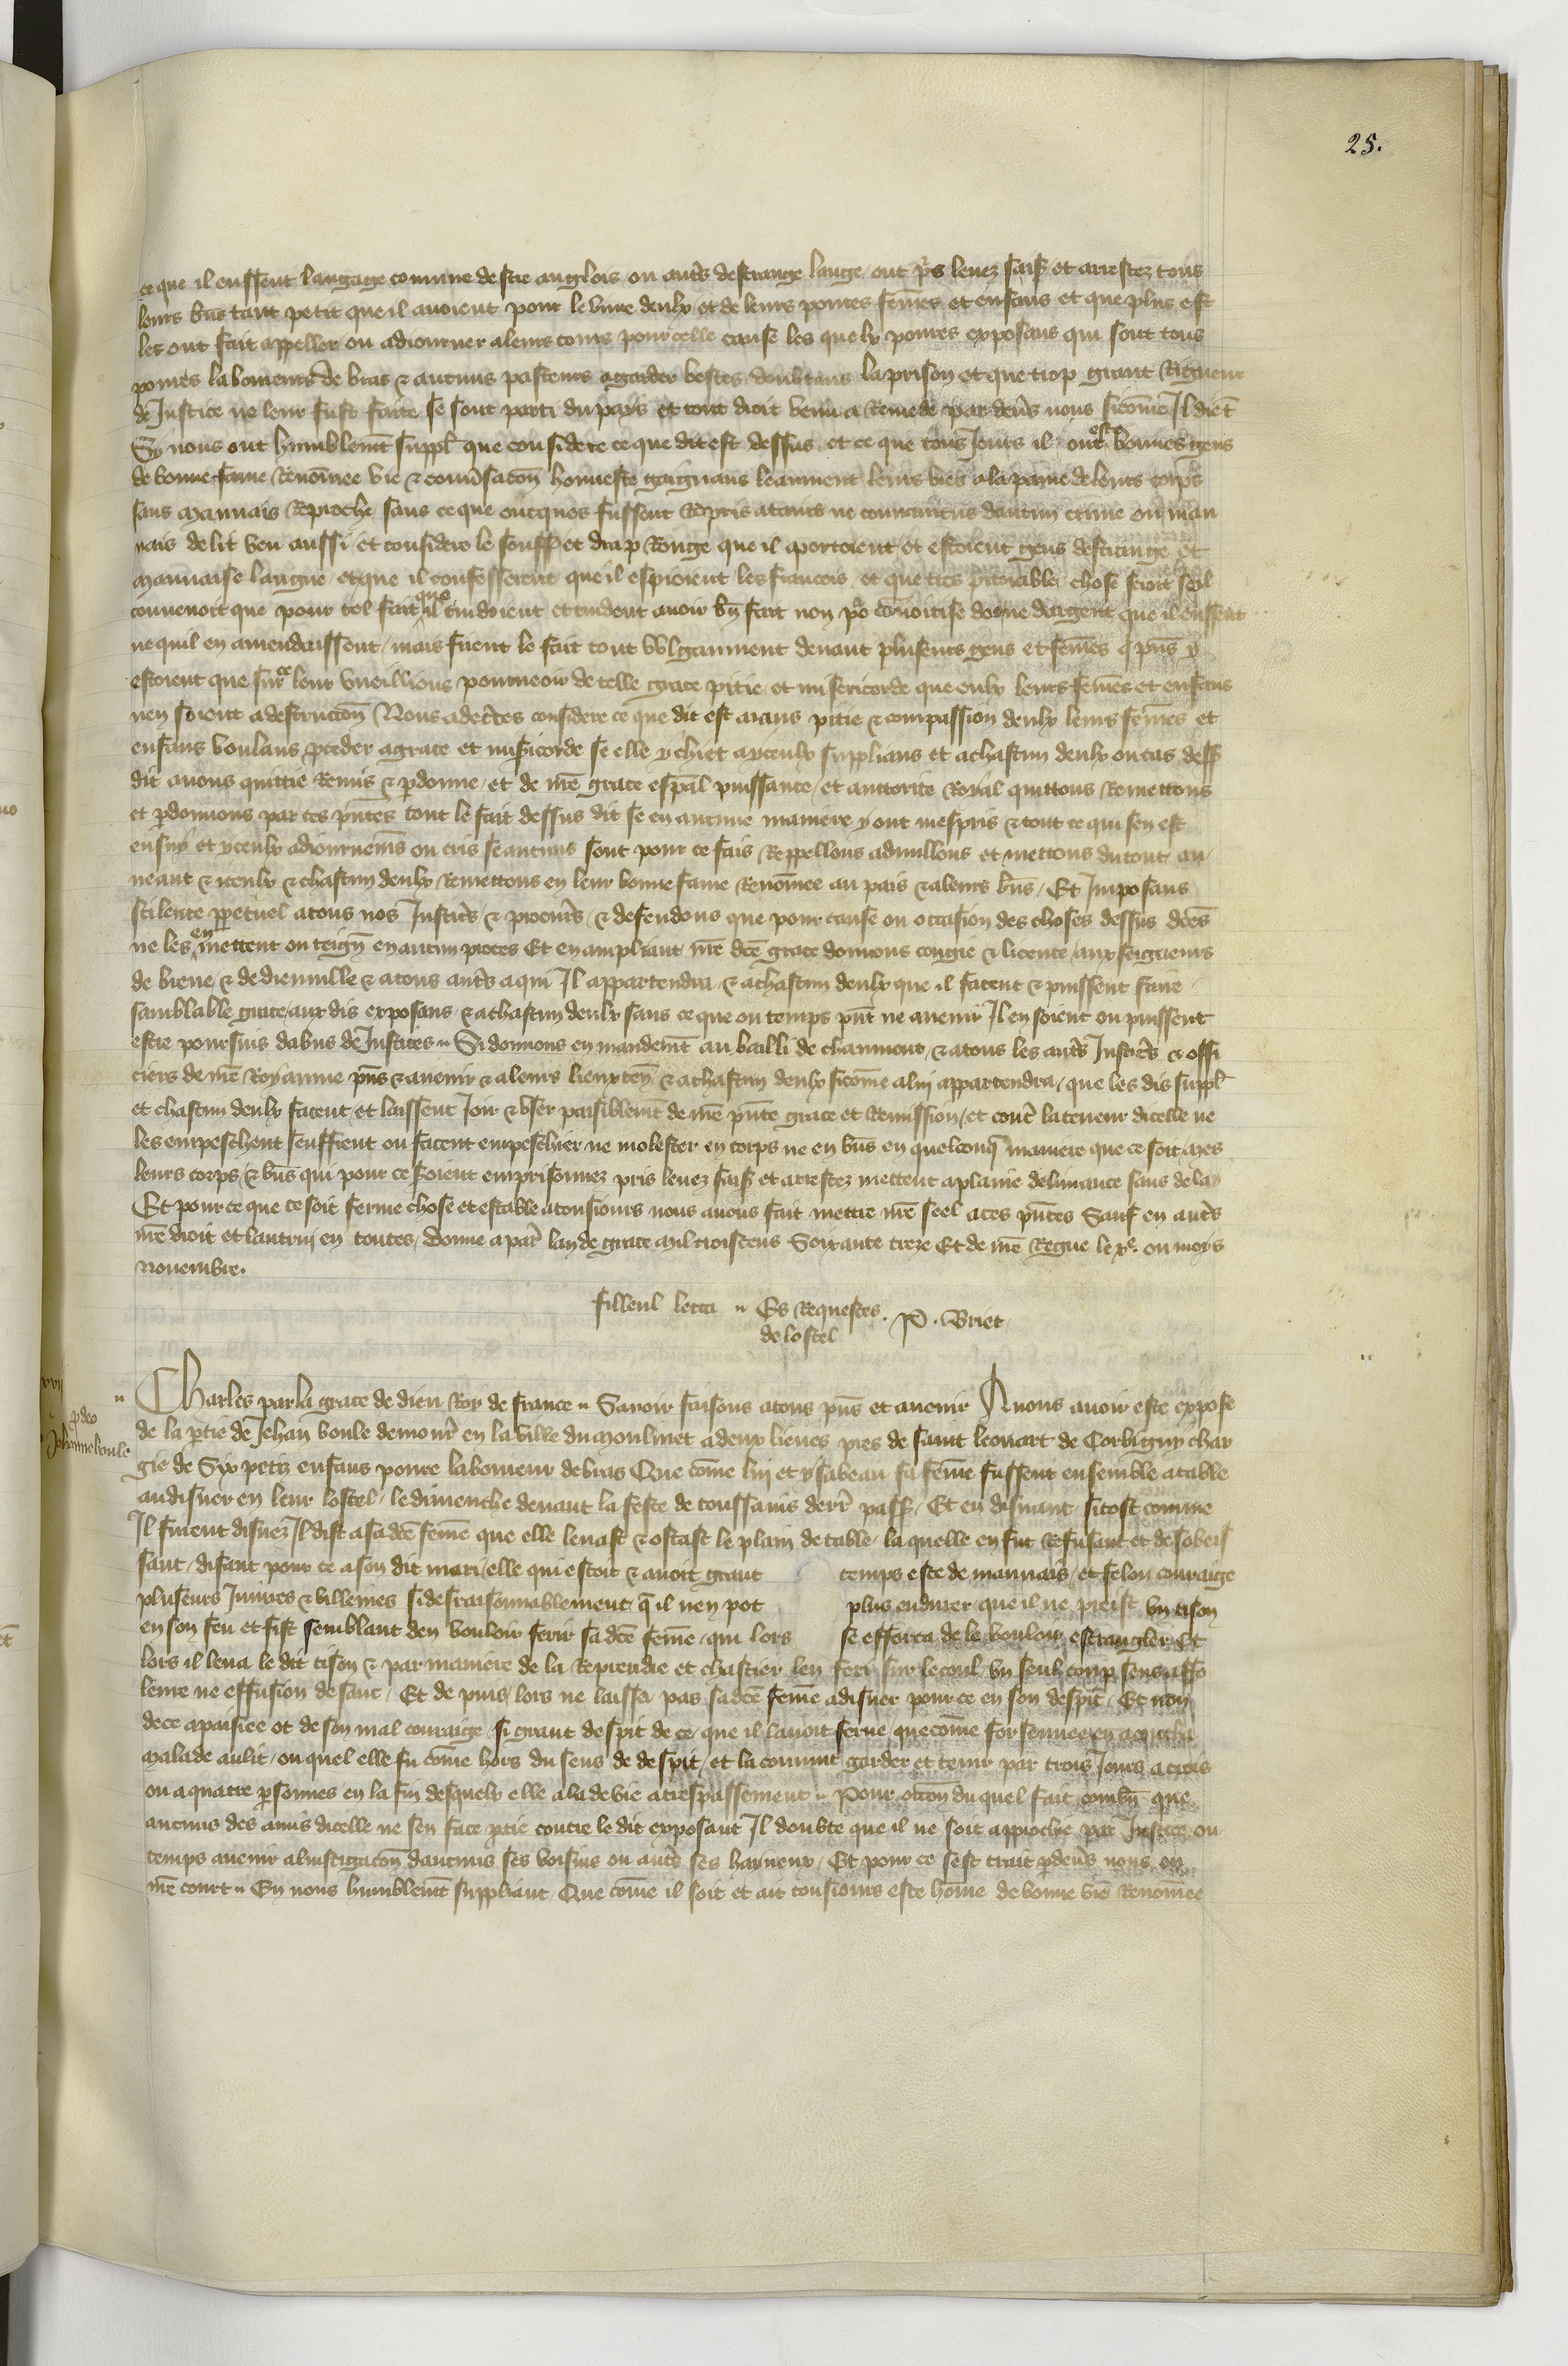 25.
ce que il eussent langage comune destre anglois ou autres destrange langue ont pris levez saisiz et arrestez tous
leurs biens tant petit que il avoient pour le vivre deulx et de leurs povres femes et enfans et que plus est
les ont fait appeller ou adiourner a leurs cours pour celle cause les quelx povres exposans qui sont tous
povres laboureurs de bras & aucuns pasteurs a garder bestes doubtans la prison et que trop grant Rigueur
de Justice ne leur fust faite se sont parti du pays et tout droit venu a Remede par devers nous si come Il dient
Sy nous ont humblement suppl que considere ce que dit est dessus et ce que tous Jours il ont este bonnes gens
de bonne fame Renomee vie & conversacon honneste gaignans leaument leurs vies a la paine de leurs corps
sans mauvais Reproche sans ce que oncques fussent Repris atains ne convaincus daucun crime ou mau
vais delit veu aussi et considere le souff et drap Rouge que il aportoient et estoient gens destrange et
mauvaise langue et que il confesserent que il espioient les francois et que tres pitoiable chose seroit seil
convenoit que pour tel fait que il cuidoient et cuident avoir bien fait non pour convoitise dor ne dargent que il eussent
ne quil en amendassent mais firent le fait tout vulgaument devant plusieurs gens et femes qui presens y
estoient que sur ce leur vueillions pourveoir de telle grace pitie et misericorde que eulx leurs femes et enfans
nen soient a destruccon Nous adecertes considere ce que dit est aians pitie & compassion deulx leurs femes et
enfans voulans proceder a grace et misericorde se elle y chiet a yceulx supplians et a chascun deulx ou cas dess
dit avons quittie Remis & pardonne et de nre grace especial puissance et auctorite Royal quittons Remettons
et pardonnons par ces presentes tout le fait dessus dit se en aucune maniere y ont mespris & tout ce qui sen est
ensuy et yceulx adiournemens ou cris se aucuns sont pour ce fais Reppellons adnullons et mettons du tout au
neant & iceulx & chascun deulx Remettons en leur bonne fame Renomee au pais & a leurs biens Et Imposans
scilence perpetuel a tous nos Justiciers & procureurs & defendons que pour cause ou occasion des choses dessus dces
ne les en mettent ou teignent en aucun proces Et en ampliant nre dce grace donnons congie & licence aux seigneurs
de biene & de dienville & a tous autres a qui Il appartendra & a chascun deulx que il facent & puissent faire
samblable grace aux dis exposans & a chascun deulx sans ce que ou temps present ne avenir Il en soient ou puissent
estre poursuis dabus de Justices Si donnons en mandement au bailli de chaumont & a tous les autres Justiciers & offi
ciers de nre Royaume presens & avenir & a leurs lieuxten & a chascun deulx si come a lui appartendra que les dis suppl
et chascun deulx facent et laissent Joir & user paisiblement de nre presente grace et Remission et contre la teneur dicelle ne
les empeschent seuffrent ou facent empeschier ne molester en corps ne en biens en quelconque maniere que ce soit mes
leurs corps & biens qui pour ce seroient emprisonnez pris levez saisiz et arrestez mettent a plaine delivrance sans delay
Et pour ce que ce soit ferme chose et estable a tousiours nous avons fait mettre nre seel a ces presentes Sauf en autres
nre droit et lautrui en toutes donne a paris lan de grace mil troiscens Soixante treze Et de nre Regne le xe. ou moys
novembre.
filleul lecta Es Requestes . P . Briet
de lostel
xvii
pro deo
Johanne boule
Charles par la grace de dieu Roy de france Savoir faisons a tous presens et avenir A nous avoir este expose
de la partie de Jehan boule demourant en la ville du moulinet a deux lieues pres de saint leonart de Corbigny char
gie de Six petiz enfans povre laboureur de bras Que come lui et ysabeau sa feme fussent ensemble a table
au disner en leur hostel le dimenche devant la feste de toussains derrenier passe Et en disnant si tost comme
Il furent disnez Il dist a sa dce feme que elle levast & ostast le plain de table la quelle en fut Refusant et desobeis
sant disant pour ce a son dit mari elle qui estoit & avoit grant temps este de mauvais et felon couraige
pluseurs Injures & villenies si desraisonnablement que il nen pot plus endurer que il ne preist un tison
en son feu et fist semblant den vouloir ferir sa dce feme qui lors se efforca de le vouloir estrangler Et
lors il leva le dit tison & par maniere de la Reprendre et chastier len feri sur le coul un seul coup sens affo
leure ne effusion de sanc Et de puis lors ne laissa pas sa dce feme a disner pour ce en son despit Et non
de ce apaisiee ot de son mal couraige si grant despit de ce que il lavoit ferue que come forsennee en acoucha
malade au lit ou quel elle fu come hors du sens de despit et la convint garder et tenir par trois Jours a trois
ou a quatre personnes en la fin desquelx elle ala de vie a trespassement Pour occon du quel fait combien que
aucuns des amis dicelle ne sen face partie contre le dit exposant Il doubte que il ne soit approche par Justice ou
temps avenir a linstigacon daucuns ses voisins ou autres ses hayneux Et pour ce sest trait pardevers nous en
nre court En nous humblement suppliant Que come il soit et ait tousiours este home de bonne vie Renomee